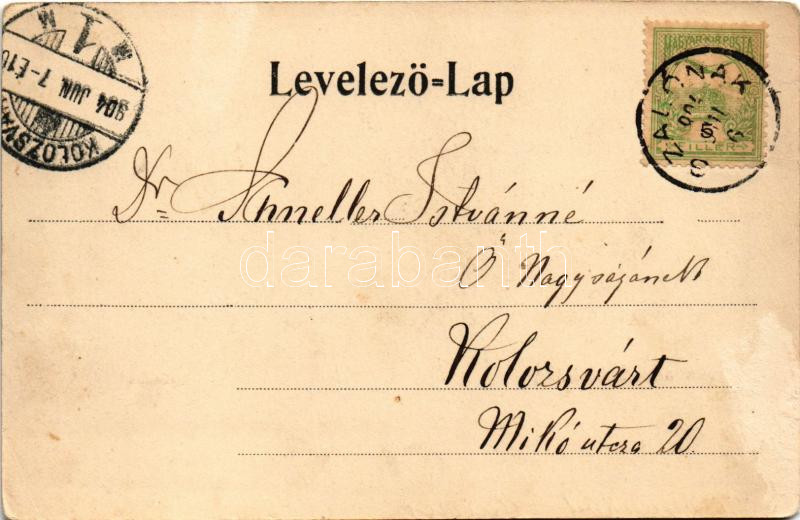 Levelező=Lap
MAGYAR KIR. POSTA
FILLÉR
SZALÓNAK
KOLOZSVÁR
904 JUN. 7-E10
1
Dr Schneller Istvánné
Ő Nagyságának
Kolozsvárt
Mikó utcza 20.
darabanth